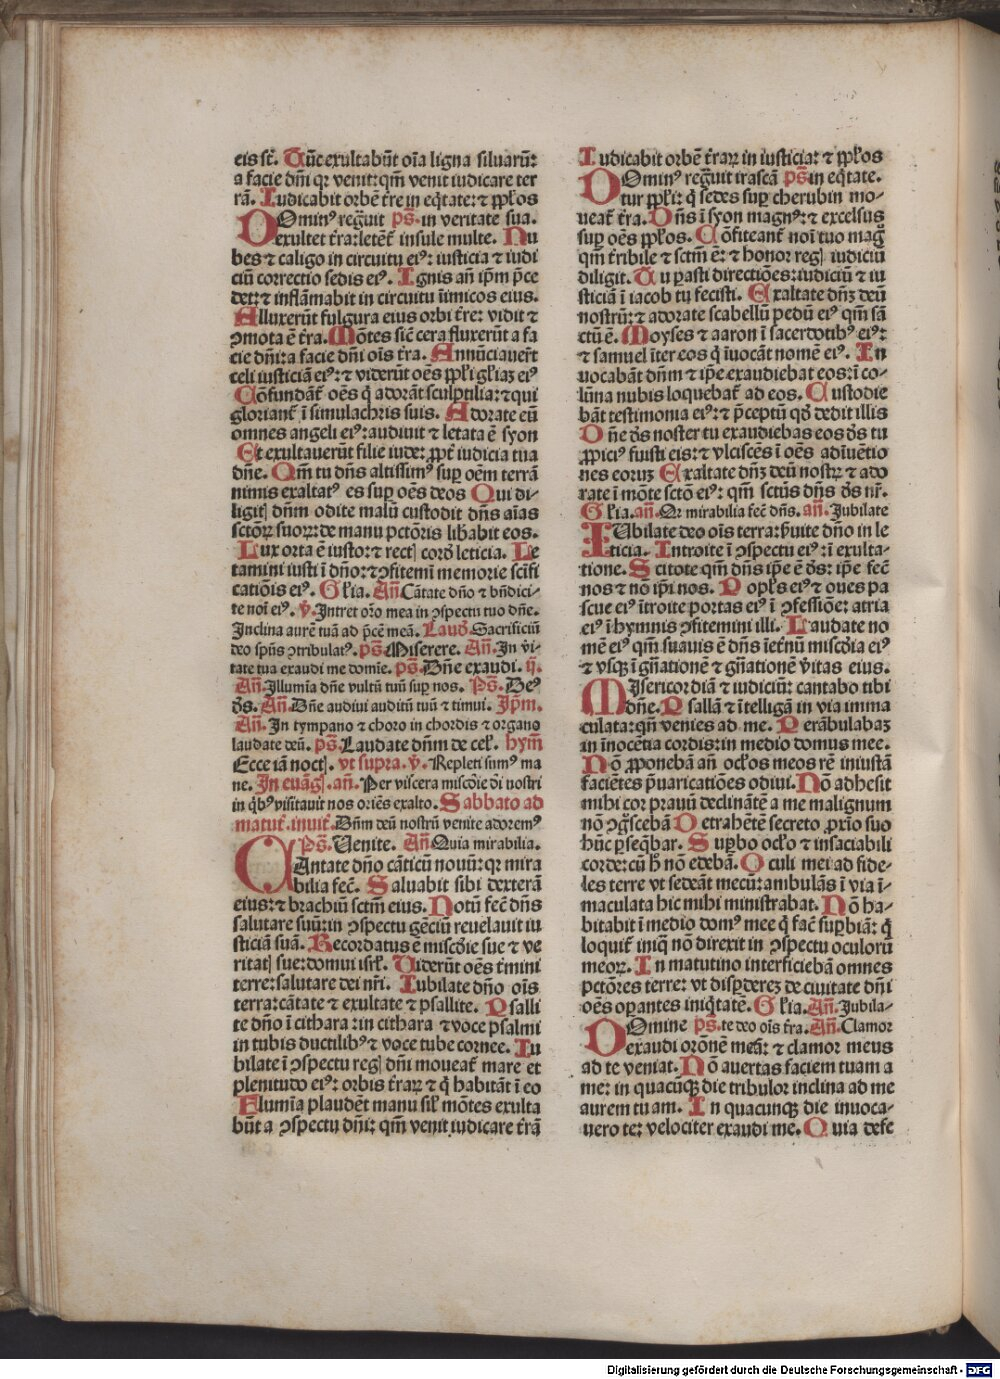 eis st̄. Tūc exultabūt oīa ligna siluarū:
a facie dn̄i qꝛ venit: qm̄ venit iudicare ter
rā. Iudicabit orbē t̄re in eq̄tate: ⁊ pp̄ľos
DOminꝰ regͣuit pš. in veritate sua.
exultet t̄ra: letēt̄ insule multe. Nu
bes ⁊ caligo in circuitu eiꝰ: iusticia ⁊ iudi
ciū correctio sedis eiꝰ. Ignis an̄ ip̄m p̄ce
det: ⁊ inflāmabit in circuitu īimicos eius.
Alluxerūt fulgura eius orbi t̄re: vidit ⁊
ꝯmota ē t̄ra. Mōtes sic̄ cera fluxerūt a fa
cie dn̄i: a facie dn̄i oīs t̄ra. Annūciauer̄t
celi iusticiā eiꝰ: ⁊ viderūt oēs pp̄ľi gľiaꝫ eiꝰ
Cōfundāt̄ oēs q̄ adorāt sculptilia: ⁊ qui
gloriant̄ ī simulachris suis. Adorate eū
omnes angeli eiꝰ: audiuit ⁊ letata ē syon
Et exultauerūt filie iude: ꝓpt̄ iudicia tua
dn̄e. Qm̄ tu dn̄s altissimꝰ suꝑ oēm terrā
nimis exaltatꝰ es suꝑ oēs deos Qui di-
ligitꝭ dn̄m odite malū custodit dn̄s aīas
sctōꝝ suoꝝ: de manu pctōris lib̄abit eos.
Lux orta ē iusto: ⁊ rectꝭ corď leticia. Le
tamini iusti ī dn̄o: ⁊ ꝯfitemī memorie scīfi
catiōis eiꝰ. Gľia. An̄ Cātate dn̄o ⁊ bn̄dici-
te noī eiꝰ. ℣. Intret orō mea in ꝯspectu tuo dn̄e.
Inclina aurē tuā ad p̄cē meā. Lauď. Sacrificiū
deo sp̄ūs ꝯtribulatꝰ. pš Miserere. An̄. In v̄i-
tate tua exaudi me domīe. pš. Dn̄e exaudi. ij.
An̄. Illumīa dn̄e vultū tuū suꝑ nos. Pš. Deꝰ
ďs. An̄. Dn̄e audiui auditū tuū ⁊ timui. Ip̄m.
An̄. In tympano ⁊ choro in chordis ⁊ organo
laudate deū. pš. Laudate dn̄m de ceľ. hym̄
Ecce iā noctꝭ. vt supra. ℣. Repleti sumꝰ ma
ne. In euāgꝭ. an̄. Per viscera misc̄die ďi nostri
in q̄bꝰ visitauit nos oriēs exalto. Sabbato ad
matut̄. inuit̄. Dn̄m deū nostrū venite adoremꝰ
Pš. Venite. An̄. Quia mirabilia.
CAntate dn̄o cāticū nouū: qꝛ mira
bilia fec̄. Saluabit sibi dexterā
eius: ⁊ brachiū sctm̄ eius. Notū fec̄ dn̄s
salutare suū: in ꝯspectu gēciū reuelauit iu
sticiā suā. Recordatus ē misc̄die sue ⁊ ve
ritatꝭ sue: domui isrľ. Viderūt oēs t̄mini
terre: salutare dei nr̄i. Iubilate dn̄o oīs
terra: cātate ⁊ exultate ⁊ psallite. Psalli
te dn̄o ī cithara: in cithara ⁊ voce psalmi
in tubis ductilibꝰ ⁊ voce tube cornee. Iu
bilate ī ꝯspectu regꝭ dn̄i moueat̄ mare et
plenitudo eiꝰ: orbis t̄raꝝ ⁊ q̄ habitāt ī eo
Flumīa plaudēt manu siľ mōtes exulta
būt a ꝯspectu dn̄i: qm̄ venit iudicare t̄rā
Iudicabit orbē t̄raꝝ in iusticia: ⁊ pp̄ľos
DOminꝰ regͣuit irascā pš in eq̄tate.
tur pp̄ľi: q̄ sedes suꝑ cherubin mo-
ueat̄ t̄ra. Dn̄s ī syon magnꝰ: ⁊ excelsus
suꝑ oēs pp̄ľos. Cōfiteant̄ noī tuo mag̊
qm̄ t̄ribile ⁊ sctm̄ ē: ⁊ honor regꝭ iudiciū
diligit. Tu ꝑasti directiōes: iudiciū ⁊ iu
sticiā ī iacob tu fecisti. Exaltate dn̄ꝫ deū
nostrū: ⁊ adorate scabellū pedū eiꝰ qm̄ sā
ctū ē. Moyses ⁊ aaron ī sacerdotibꝰ eiꝰ:
⁊ samuel īter eos q̄ īuocāt nomē eiꝰ. In
uocabāt dn̄m ⁊ ip̄e exaudiebat eos: ī co-
lūna nubis loquebat̄ ad eos. Custodie
bāt testimonia eiꝰ: ⁊ p̄ceptū qď dedit illis
Dn̄e ďs noster tu exaudiebas eos ďs tu
ꝓpiciꝰ fuisti eis: ⁊ vlciscēs ī oēs adīuētio
nes eoruꝫ Exaltate dn̄ꝫ deū nostꝝ ⁊ ado
rate ī mōte sctō eiꝰ: qm̄ sctūs dn̄s ďs nr̄.
Gľia. an̄. Qꝛ mirabilia fec̄ dn̄s. an̄. Jubilate
IUbilate deo oīs terra: ẜuite dn̄o in le
ticia. Introite ī ꝯspectu eiꝰ: ī exulta-
tione. Scitote qm̄ dn̄s ip̄e ē ďs: ip̄e fec̄
nos ⁊ nō ip̄i nos. Popľs eiꝰ ⁊ oues pa
scue eiꝰ ītroite portas eiꝰ ī ꝯfessiōe: atria
eiꝰ ī hymnis ꝯfitemini illi. Laudate no
mē eiꝰ qm̄ suauis ē dn̄s īet̄nū misc̄dia eiꝰ
⁊ vsqꝫ ī gn̄ationē ⁊ gn̄ationē v̄itas eius.
MIsericordiā ⁊ iudiciū: cantabo tibi
dn̄e. Psallā ⁊ ītelligā in via imma
culata: qn̄ venies ad me. Perābulabaꝫ
in īnocētia cordis: in medio domus mee.
Nō ꝓponebā an̄ ocľos meos rē iniustā
faciētes p̄uaricatiōes odiui. Nō adhesit
mihi cor prauū declinātē a me malignum
nō ꝯg̊scebā Detrahētē secreto ꝓxīo suo
hūc ꝑseq̄bar. Suꝑbo ocľo ⁊ insaciabili
corde: cū h̊ nō edebā. Oculi mei ad fide-
les terre vt sedeāt mecū: ambulās ī via ī-
maculata hic mihi ministrabat. Nō ha-
bitabit ī medio domꝰ mee q̄ fac̄ suꝑbiā: q̄
loquit̄ iniq̄ nō direxit in ꝯspectu oculorū
meoꝝ. In matutino interficiebā omnes
pctōres terre: vt disꝑdereꝫ de ciuitate dn̄i
oēs oꝑantes iniq̄tatē. Gľia. An̄. Jubila-
DOmine pš. te deo oīs t̄ra. An̄. Clamor
exaudi orōnē meā: ⁊ clamor meus
ad te veniat. Nō auertas faciem tuam a
me: in quacūqꝫ die tribulor inclina ad me
aurem tuam. In quacunqꝫ die inuoca-
uero te: velociter exaudi me. Quia defe
Digitalisierung gefördert durch die Deutsche Forschungsgemeinschaft - DFG